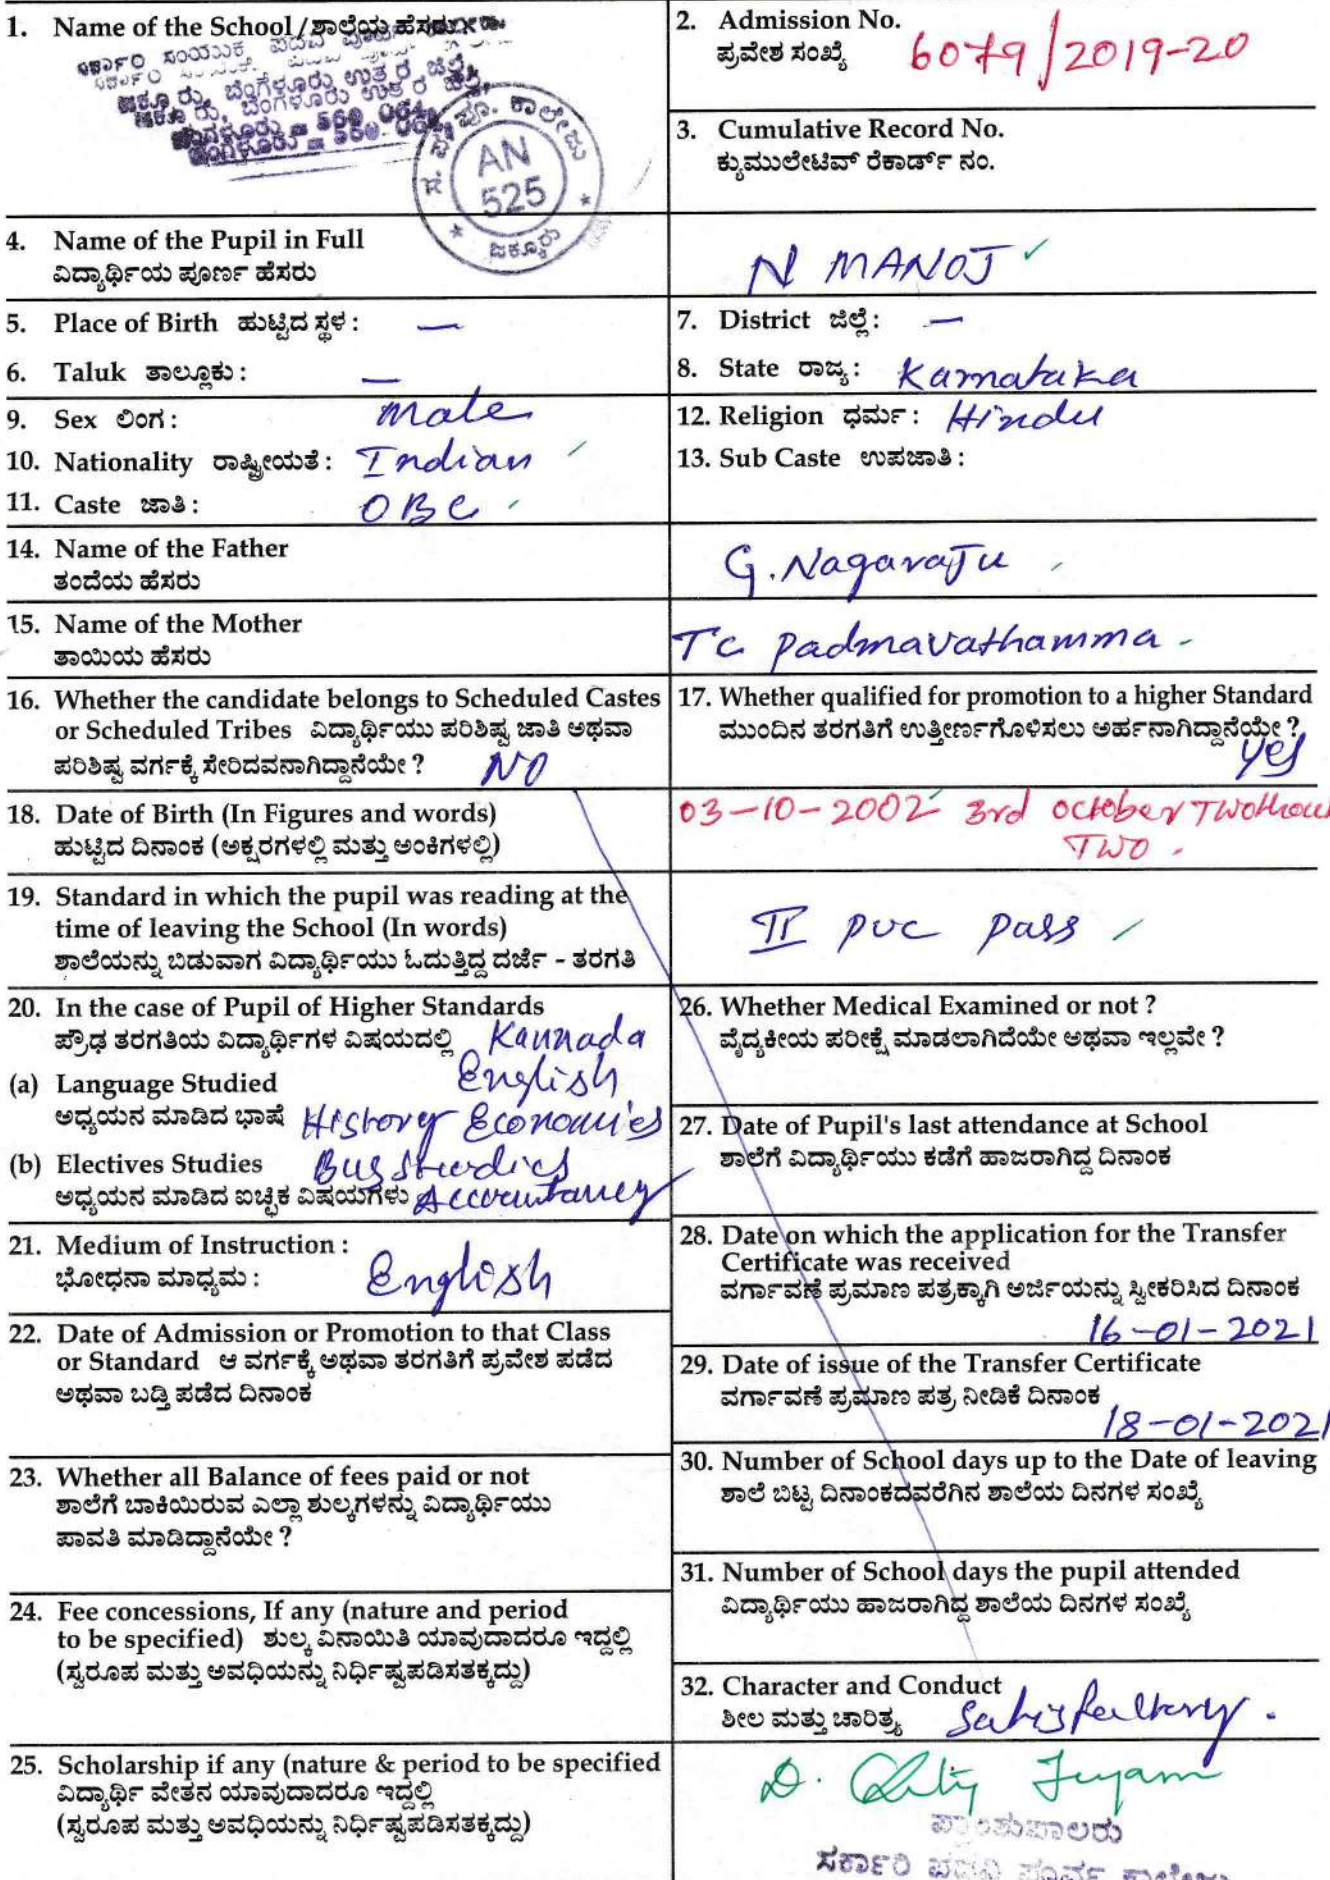 1. Name of the School/ಶಾಲೆಯ ಹೆಸರು
ಜಕ್ಕೂರು, ಬೆಂಗಳೂರು ಉತ್ತರ ಜಿಲ್ಲೆ,
ಬೆಂಗಳೂರು = 560 064
ಸ. ಪ. ಪೂ. ಕಾಲೇಜು
AN
525
ಜಕ್ಕೂರು
2. Admission No.
ಪ್ರವೇಶ ಸಂಖ್ಯೆ 6079/2019-20
3. Cumulative Record No.
ಕ್ಯುಮುಲೇಟಿವ್ ರೆಕಾರ್ಡ್ ನಂ.
4. Name of the Pupil in Full
ವಿದ್ಯಾರ್ಥಿಯ ಪೂರ್ಣ ಹೆಸರು
N MANOJ
5. Place of Birth ಹುಟ್ಟಿದ ಸ್ಥಳ : —
6. Taluk ತಾಲ್ಲೂಕು : —
7. District ಜಿಲ್ಲೆ : —
8. State ರಾಜ್ಯ : Karnataka
9. Sex ಲಿಂಗ : male
10. Nationality ರಾಷ್ಟ್ರೀಯತೆ : Indian
11. Caste ಜಾತಿ : OBC
12. Religion ಧರ್ಮ : Hindu
13. Sub Caste ಉಪಜಾತಿ :
14. Name of the Father
ತಂದೆಯ ಹೆಸರು
G. Nagaraju
15. Name of the Mother
ತಾಯಿಯ ಹೆಸರು
TC Padmavathamma
16. Whether the candidate belongs to Scheduled Castes
or Scheduled Tribes ವಿದ್ಯಾರ್ಥಿಯು ಪರಿಶಿಷ್ಟ ಜಾತಿ ಅಥವಾ
ಪರಿಶಿಷ್ಟ ವರ್ಗಕ್ಕೆ ಸೇರಿದವನಾಗಿದ್ದಾನೆಯೇ ? NO
17. Whether qualified for promotion to a higher Standard
ಮುಂದಿನ ತರಗತಿಗೆ ಉತ್ತೀರ್ಣಗೊಳಿಸಲು ಅರ್ಹನಾಗಿದ್ದಾನೆಯೇ ?
yes
18. Date of Birth (In Figures and words)
ಹುಟ್ಟಿದ ದಿನಾಂಕ (ಅಕ್ಷರಗಳಲ್ಲಿ ಮತ್ತು ಅಂಕಿಗಳಲ್ಲಿ)
03-10-2002 3rd October Twothou
TWO.
19. Standard in which the pupil was reading at the
time of leaving the School (In words)
ಶಾಲೆಯನ್ನು ಬಿಡುವಾಗ ವಿದ್ಯಾರ್ಥಿಯು ಓದುತ್ತಿದ್ದ ದರ್ಜೆ - ತರಗತಿ
II PUC pass
20. In the case of Pupil of Higher Standards
ಪ್ರೌಢ ತರಗತಿಯ ವಿದ್ಯಾರ್ಥಿಗಳ ವಿಷಯದಲ್ಲಿ Kannada
(a) Language Studied English
ಅಧ್ಯಯನ ಮಾಡಿದ ಭಾಷೆ History Economics
(b) Electives Studies Bus Studies
ಅಧ್ಯಯನ ಮಾಡಿದ ಐಚ್ಛಿಕ ವಿಷಯಗಳು Accountancy
21. Medium of Instruction :
ಭೋಧನಾ ಮಾಧ್ಯಮ : English
22. Date of Admission or Promotion to that Class
or Standard ಆ ವರ್ಗಕ್ಕೆ ಅಥವಾ ತರಗತಿಗೆ ಪ್ರವೇಶ ಪಡೆದ
ಅಥವಾ ಬಡ್ತಿ ಪಡೆದ ದಿನಾಂಕ
23. Whether all Balance of fees paid or not
ಶಾಲೆಗೆ ಬಾಕಿಯಿರುವ ಎಲ್ಲಾ ಶುಲ್ಕಗಳನ್ನು ವಿದ್ಯಾರ್ಥಿಯು
ಪಾವತಿ ಮಾಡಿದ್ದಾನೆಯೇ ?
24. Fee concessions, If any (nature and period
to be specified) ಶುಲ್ಕ ವಿನಾಯಿತಿ ಯಾವುದಾದರೂ ಇದ್ದಲ್ಲಿ
(ಸ್ವರೂಪ ಮತ್ತು ಅವಧಿಯನ್ನು ನಿರ್ಧಿಷ್ಟಪಡಿಸತಕ್ಕದ್ದು)
25. Scholarship if any (nature & period to be specified
ವಿದ್ಯಾರ್ಥಿ ವೇತನ ಯಾವುದಾದರೂ ಇದ್ದಲ್ಲಿ
(ಸ್ವರೂಪ ಮತ್ತು ಅವಧಿಯನ್ನು ನಿರ್ಧಿಷ್ಟಪಡಿಸತಕ್ಕದ್ದು)
26. Whether Medical Examined or not ?
ವೈದ್ಯಕೀಯ ಪರೀಕ್ಷೆ ಮಾಡಲಾಗಿದೆಯೇ ಅಥವಾ ಇಲ್ಲವೇ ?
27. Date of Pupil's last attendance at School
ಶಾಲೆಗೆ ವಿದ್ಯಾರ್ಥಿಯು ಕಡೆಗೆ ಹಾಜರಾಗಿದ್ದ ದಿನಾಂಕ
28. Date on which the application for the Transfer
Certificate was received
ವರ್ಗಾವಣೆ ಪ್ರಮಾಣ ಪತ್ರಕ್ಕಾಗಿ ಅರ್ಜಿಯನ್ನು ಸ್ವೀಕರಿಸಿದ ದಿನಾಂಕ
16-01-2021
29. Date of issue of the Transfer Certificate
ವರ್ಗಾವಣೆ ಪ್ರಮಾಣ ಪತ್ರ ನೀಡಿಕೆ ದಿನಾಂಕ
18-01-2021
30. Number of School days up to the Date of leaving
ಶಾಲೆ ಬಿಟ್ಟ ದಿನಾಂಕದವರೆಗಿನ ಶಾಲೆಯ ದಿನಗಳ ಸಂಖ್ಯೆ
31. Number of School days the pupil attended
ವಿದ್ಯಾರ್ಥಿಯು ಹಾಜರಾಗಿದ್ದ ಶಾಲೆಯ ದಿನಗಳ ಸಂಖ್ಯೆ
32. Character and Conduct
ಶೀಲ ಮತ್ತು ಚಾರಿತ್ರ್ಯ Satisfactory.
ಪ್ರಾಂಶುಪಾಲರು
ಸರ್ಕಾರಿ ಪದವಿ ಪೂರ್ವ ಕಾಲೇಜು